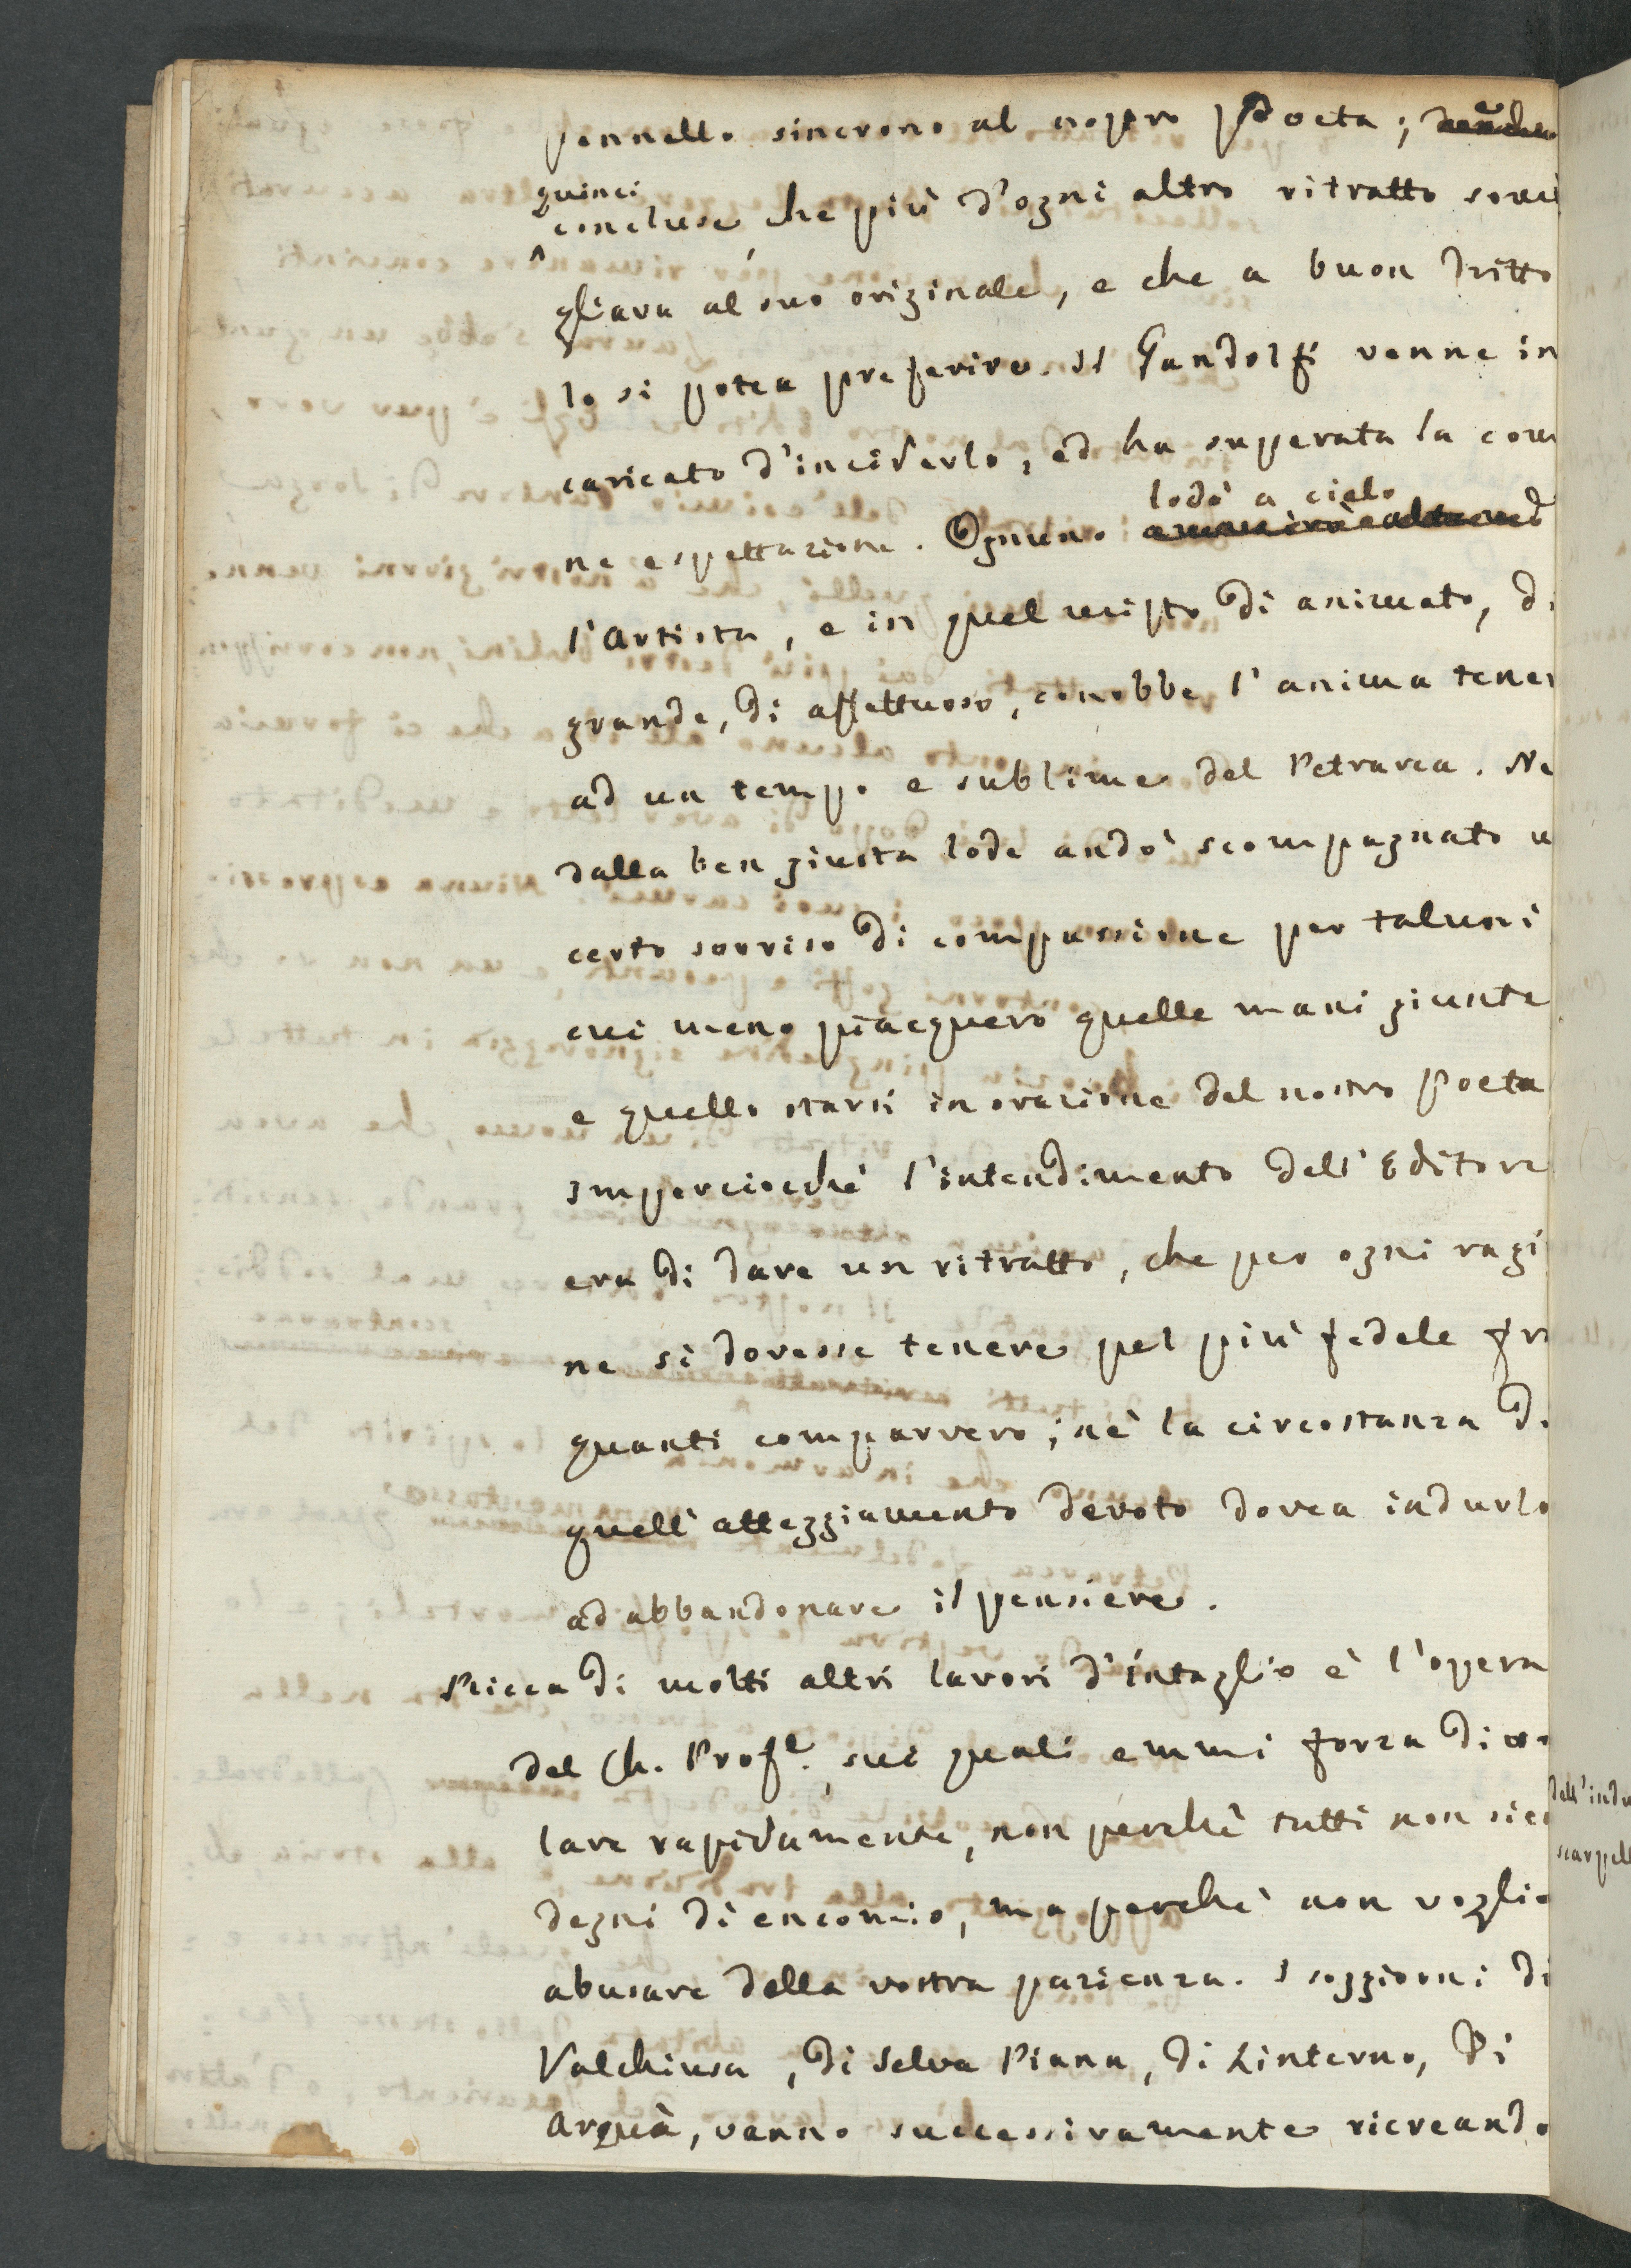 pennello sincrono al nostro Poeta;
quinci
concluse, che più d'ogni altro ritratto somi
gliava al suo originale, e che a buon dritto
lo si potea preferire. Il Gandolfi venne in
caricato d'inciderlo, ed ha superata la com
lodò a cielo
ne espettazione. Ognuno
l'Artista, e in quel misto di animato, di
grande, di affettuoso, conobbe l'anima tener
ad un tempo e sublime del Petrarca. Ne
dalla ben giusta lode andò scompagnato u
certo sorriso di compassione per taluni
cui meno piacquero quelle mani giunte
e quello starsi in orazione del nostro poeta
Imperciocchè l'intendimento dell'Editore
era di dare un ritratto, che per ogni ragi
ne si dovesse tenere pel più fedele fr
quanti comparvero; nè la circostanza d
quell'atteggiamento devoto dovea indurlo
ad abbandonare il pensiere.
Ricca di molti altri lavori d'intaglio è l'opera
del Ch. Profe. sui quali emmi forza di vo
lare rapidamente, non perchè tutti non sien
degni di encomio, ma perchè non voglio
abusare della vostra pazienza. I soggiorni di
Valchiusa, di Selva Piana, di Linterno, di
Arquà, vanno successivamente ricreando
dell'indu
scarpell